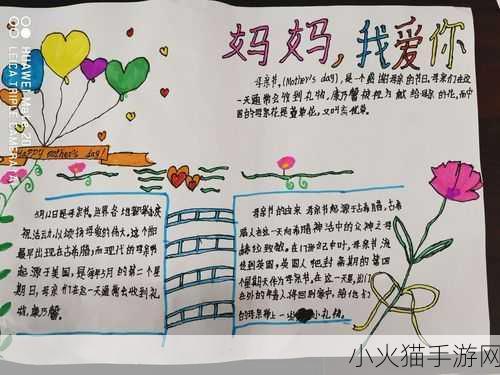 HUAWEI
LEICA TRIPLE CAMERA
妈妈,我爱你
母亲节,(Mother's day),是一个感谢母亲的节日,母亲们在这
一天通常会收到礼物,康乃馨被视为献给母亲的花,而中
国的母亲花是萱草花,又叫忘忧草。
Happy mother's day!
5月12日是母亲节,世界各地都举办庆
祝活动,以颂扬母爱的伟大。这个节日
最早出现在古希腊;而现代的母亲节
起源于美国,是每年5月的第二个星
期日,母亲们在这一天通常会收到礼
物,康乃馨。
母亲节的由来 母亲节起源于古希腊,古希
腊人在这一天向希腊神话中的众神之母
赫拉致敬。在17世纪中叶,母亲节流
传到英国,英国人把封斋期的第四
个星期天作为母亲节,在这一天里,出门
在外的年轻人将回到家中,给他们
的母亲带上一些小礼物。
小火猫手游网